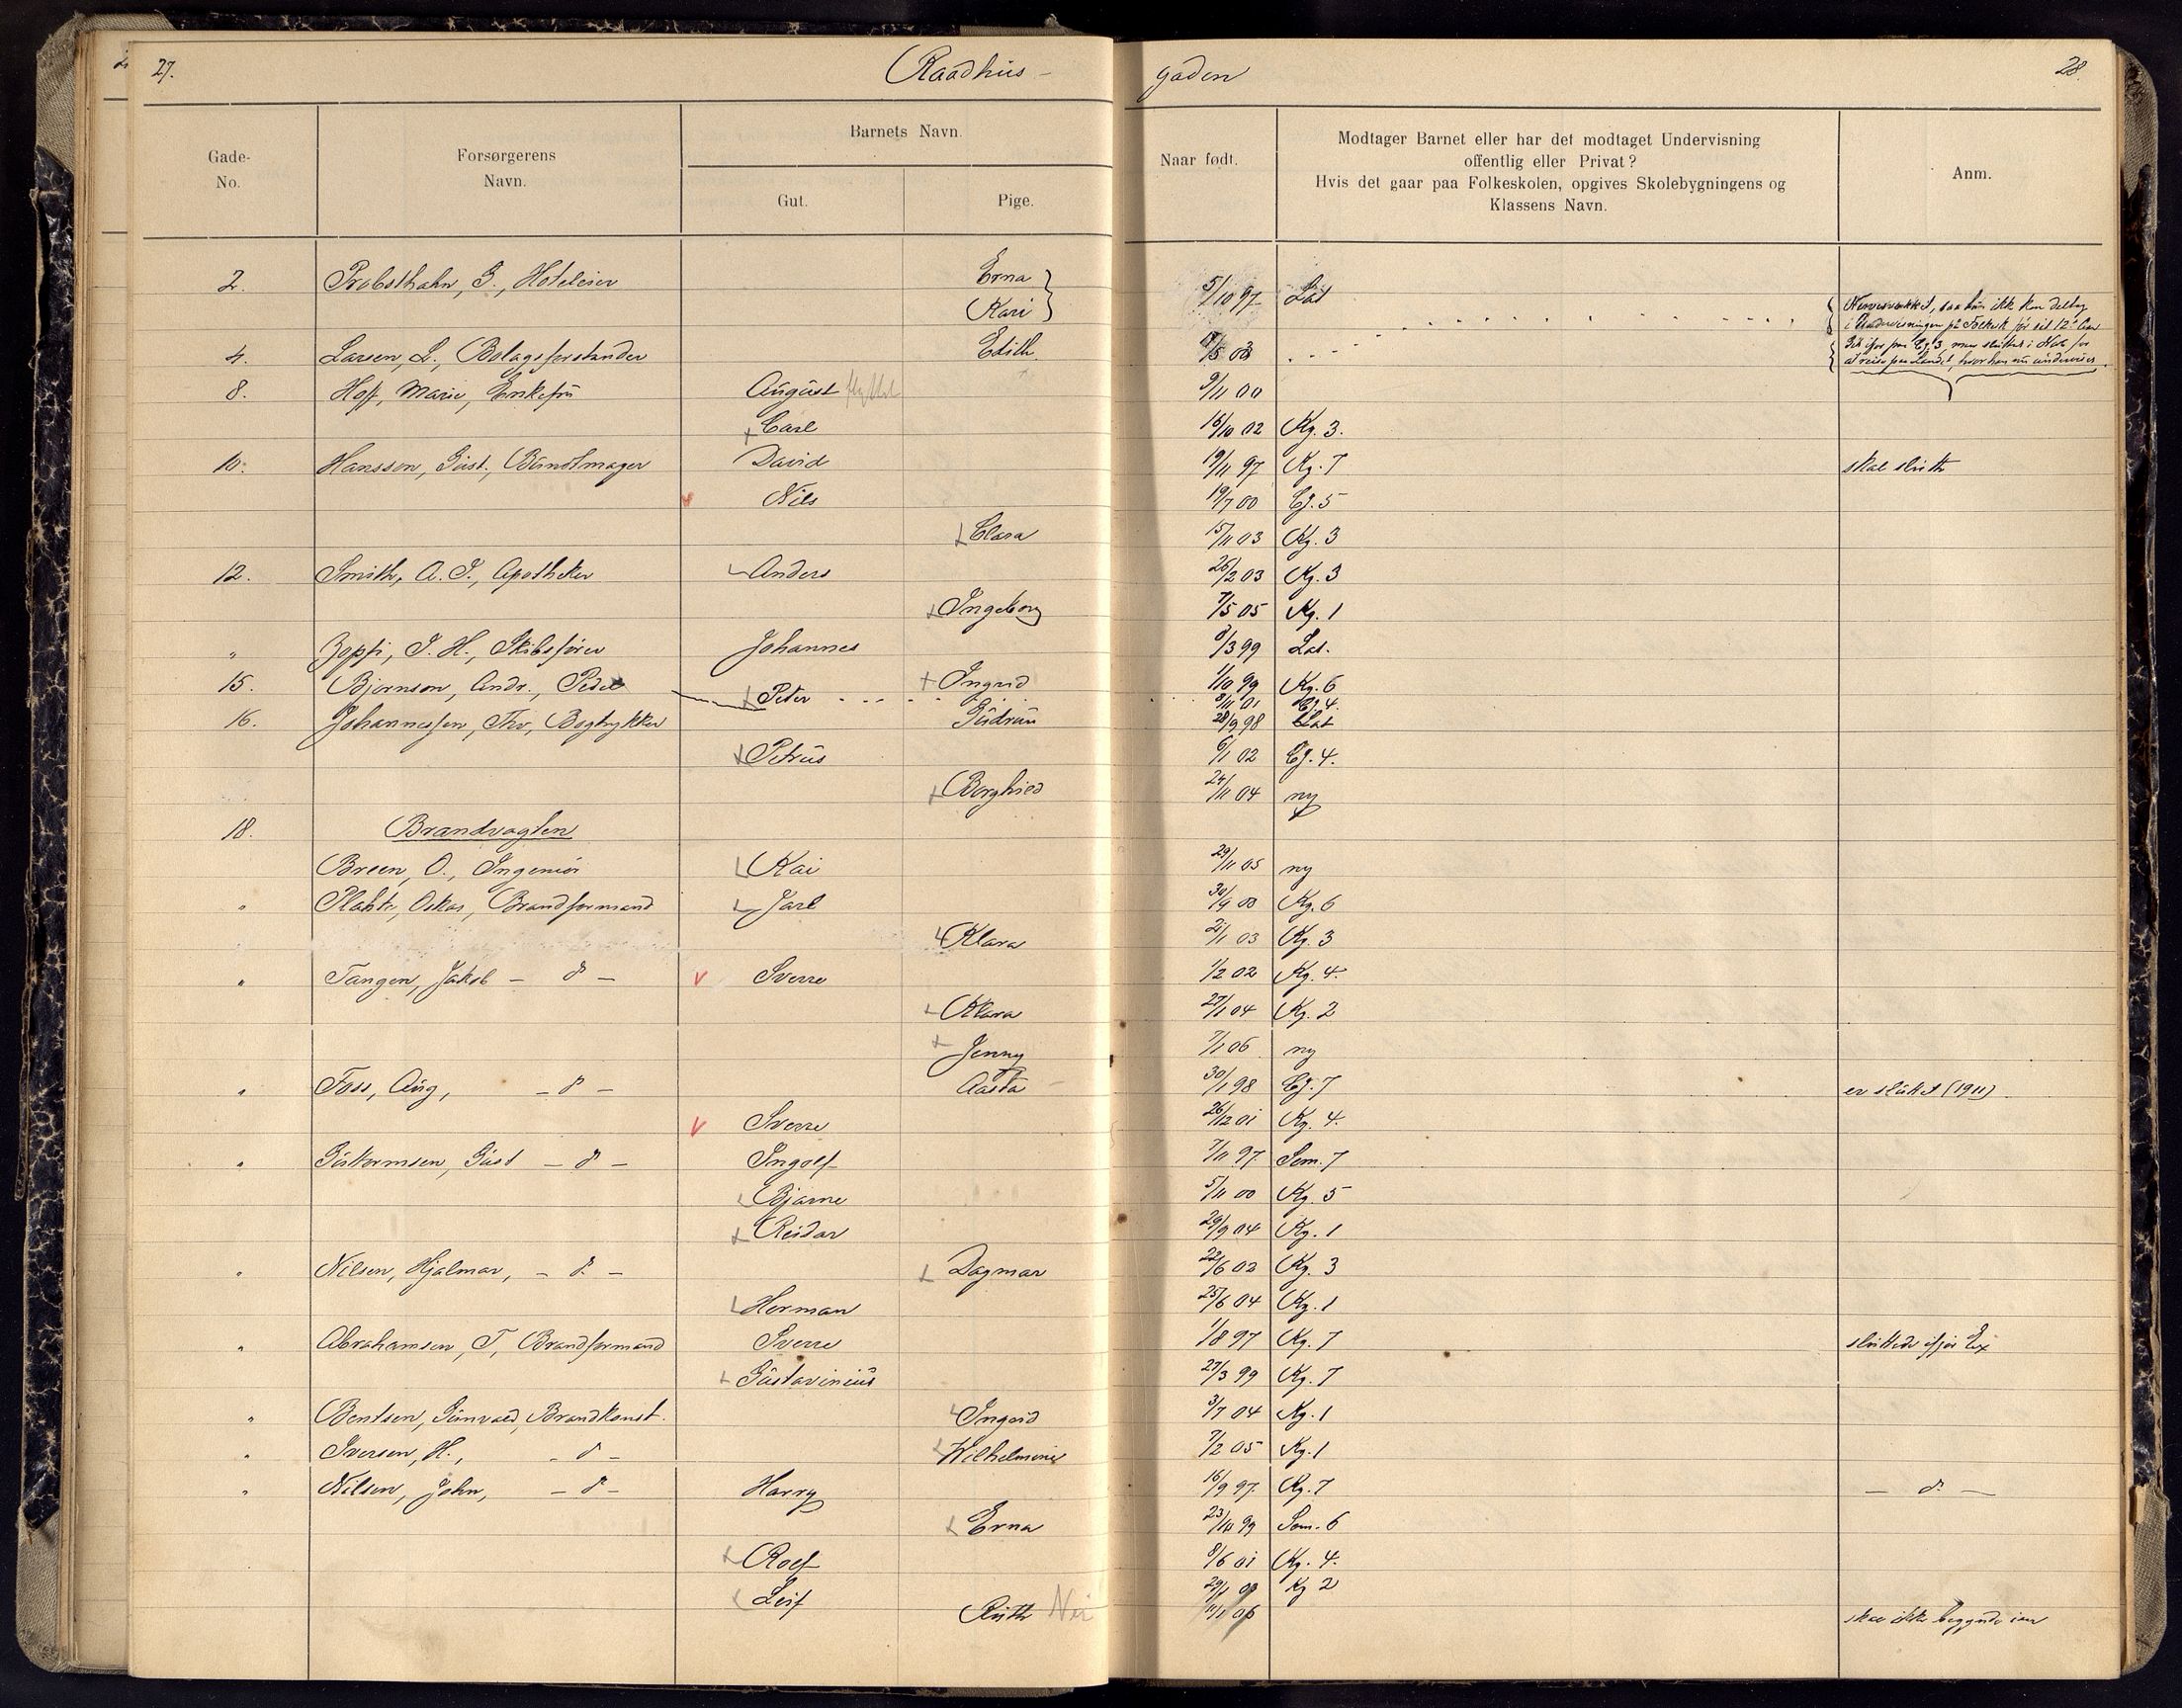 27. Raadhus- gaden 28.
Gade-No. Forsørgerens Navn. Barnets Navn. Gut. Pige. Naar født. Modtager Barnet eller har det modtaget Undervisning
offentlig eller Privat?
Hvis det gaar paa Folkeskolen, opgives Skolebygningens og
Klassens Navn. Anm.
2. Probsthahn, G., Hoteleier Erna 5/10 97 Lat
Kari
4. Larsen, L., Bolagsforstander Edith
8. Hoff, Marie, Enkefru August flyttet 9/11 00
Carl 16/10 02 Kg. 3.
10. Hansson, Gust. Buntmager David 19/11 97 Kg. 7 skal slutte
Nils 19/7 00 Ej. 5
Clara 15/11 03 Kg. 3
12. Smith, A. S., Apotheker Anders 26/2 03 Kg. 3
Ingeborg 7/5 05 Kg. 1
" Zoppi, J. H., Skibsfører Johannes 8/3 99 Lat.
15. Bjørnson, Andr., Pedel Ingrid 1/10 99 Kg. 6
Peter 8/11 01 Ej. 4.
16. Johannessen, Thv., Bogtrykker Gudrun 28/9 98 Lat
Petrus 6/1 02 Ej. 4.
Borghild 24/11 04 ny
18. Brandvagten
Breen, O., Ingeniør Kai 29/11 05 ny
" Plahte, Oskar, Brandformand Jarl 30/9 00 Kg. 6
Klara 21/1 03 Kg. 3
" Tangen, Jakob - d - Sverre 1/2 02 Kg. 4.
Klara 27/1 04 Kg. 2
Jenny 7/1 06 ny
" Foss, Aug, - d - Aasta 30/1 98 Ej. 7 er sluttet (1911)
Sverre 26/12 01 Kg. 4.
" Guttormsen, Gust - d - Ingolf 7/11 97 Sem. 7
Bjarne 5/11 00 Kg. 5
Reidar 29/9 04 Kg. 1
" Nilsen, Hjalmar, - d. - Dagmar 22/6 02 Kg. 3
Herman 25/6 04 Kg. 1
" Abrahamsen, T, Brandformand Sverre 1/8 97 Kg. 7 sluttede ifjor Ex
Gustavinius 27/3 99 Kg. 7
" Bentsen, Gunvald, Brandkonst. Ingrid 3/7 04 Kg. 1
" Iversen, H., - d - Wilhelmine 7/2 05 Kg. 1
" Nilsen, John, - d - Harry 16/9 97 Kg. 7 - d. -
Erna 23/10 99 Sem. 6
Rolf 8/6 01 Kg. 4.
Leif Kg 2
Ruth Nei skal ikke begynde iaar